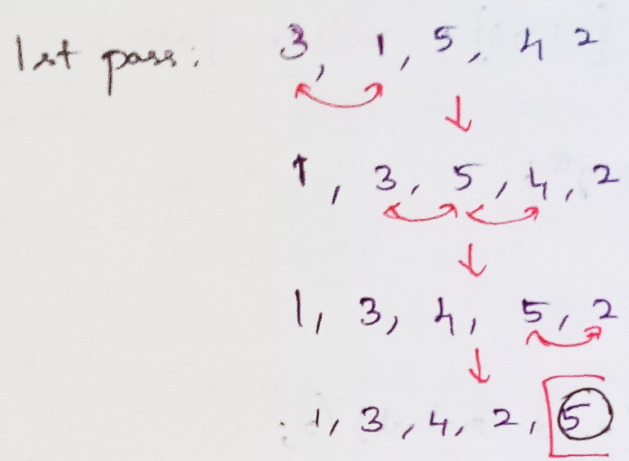 1st pass: 3, 1, 5, 4 2
1, 3, 5, 4, 2
1, 3, 4, 5, 2
1, 3, 4, 2, 5